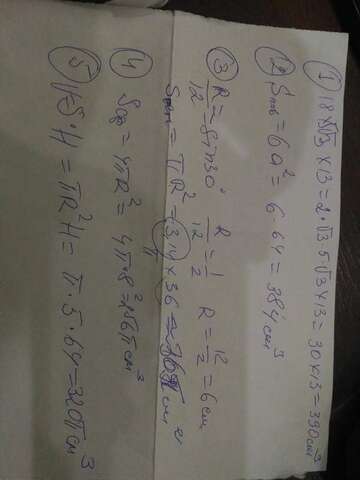 ① 18 × 5√3 × 13 = 2·√3·5·√3 × 13 = 30 × 13 = 390 см³
② Sпов = 6a² = 6·64 = 384 см³
③ R/12 = Sin30° R/12 = 1/2 R = 12/2 = 6 см
= πR² = 3,14 × 36 = см²
④ = 4πR² = 4π·8² = 256π см³
⑤ V = S·H = πR²H = π·5·64 = 320π см³